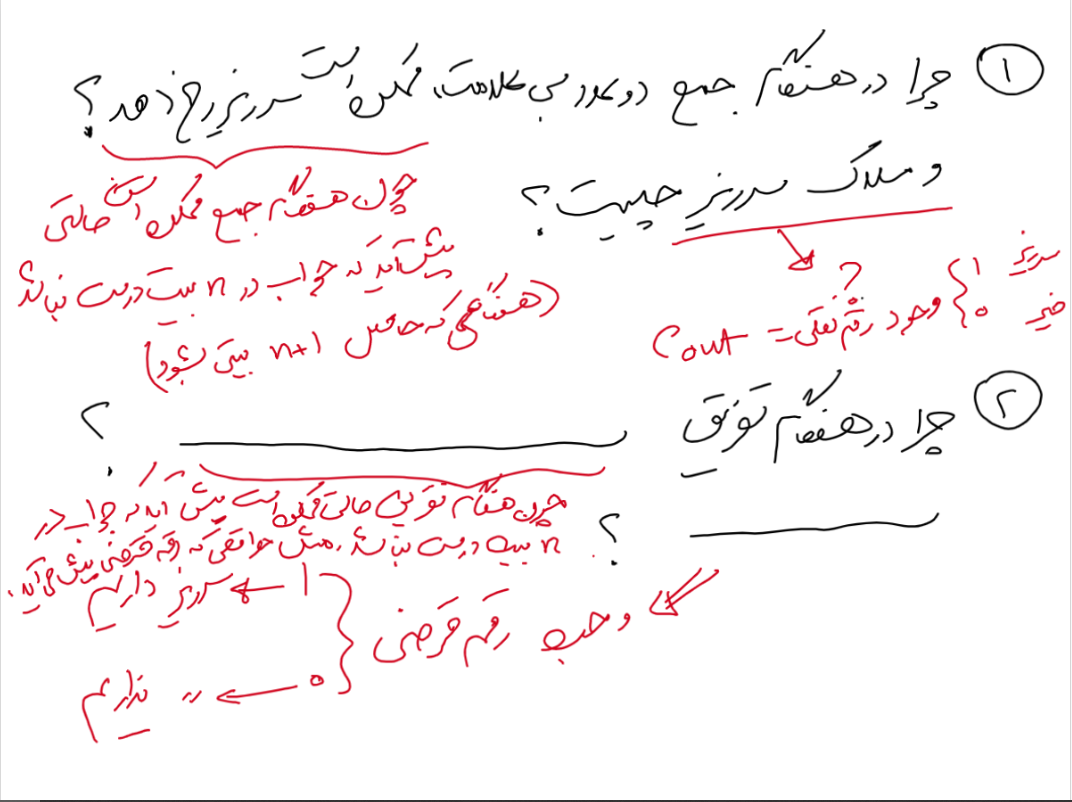 ① چرا در هنگام جمع دو عدد بی علامت، ممکن است سرریز رخ دهد؟
و ملاک سرریز چیست؟
چون هنگام جمع ممکن است حالتی
پیش آید که جواب در n بیت درست نباشد
(هنگامی که حاصل n+1 بیتی شود)
سرریز
خیر
1
0
؟
وجود رقم نقلی = Cout
② چرا در هنگام تفریق ؟
؟
چون هنگام تفریق حالتی ممکن است پیش آید که جواب در
n بیت درست نباشد. مثل مواقعی که رقم قرضی پیش می‌آید.
وجود رقم قرضی
1 ← سرریز داریم
0 ← " نداریم